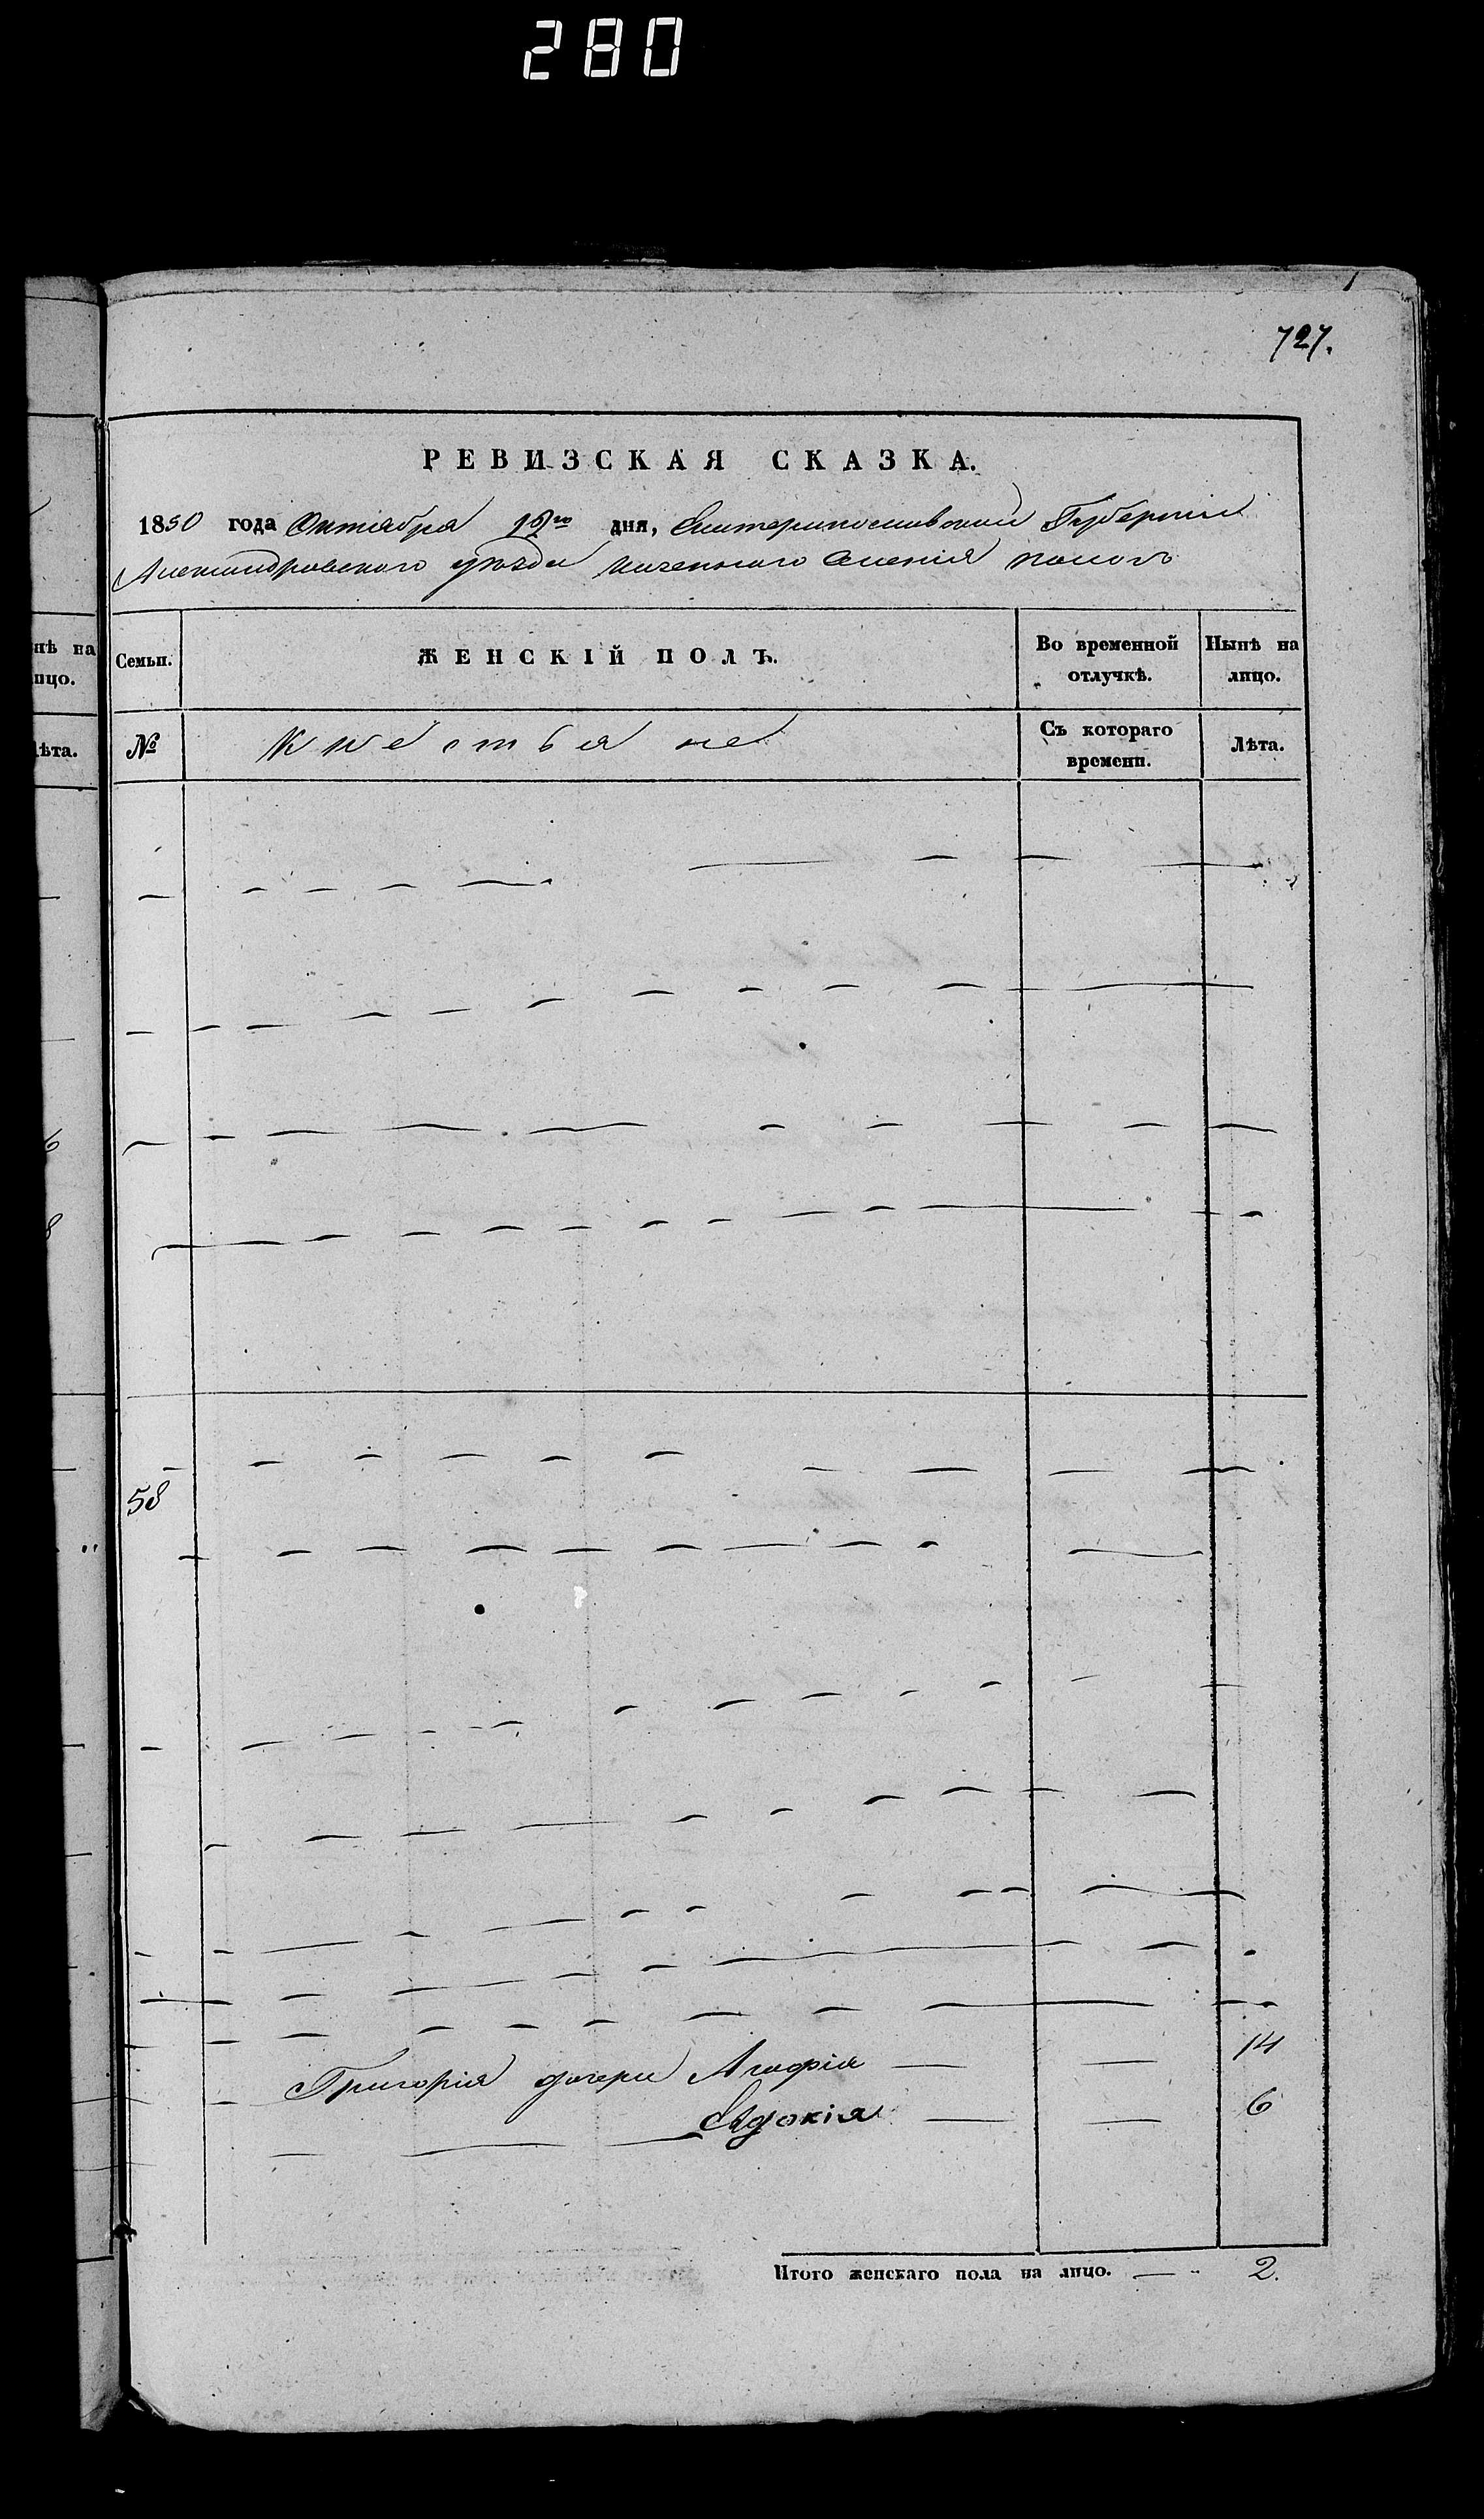 280
727.
РЕВИЗСКАЯ СКАЗКА.
1850 года Октября 18го дня, Екатеринославской Губерніи
Александровского уезда казенного селенія
Семьи.
ЖЕНСКІЙ ПОЛЪ.
Во временной отлучкѣ.
Нынѣ на лицо.
№
Крестьяне
Съ котораго времени.
Лѣта.
58
Григорія дочери Агафія — — 14
Евдокія — — 6
Итого женскаго пола на лицо. — 2.